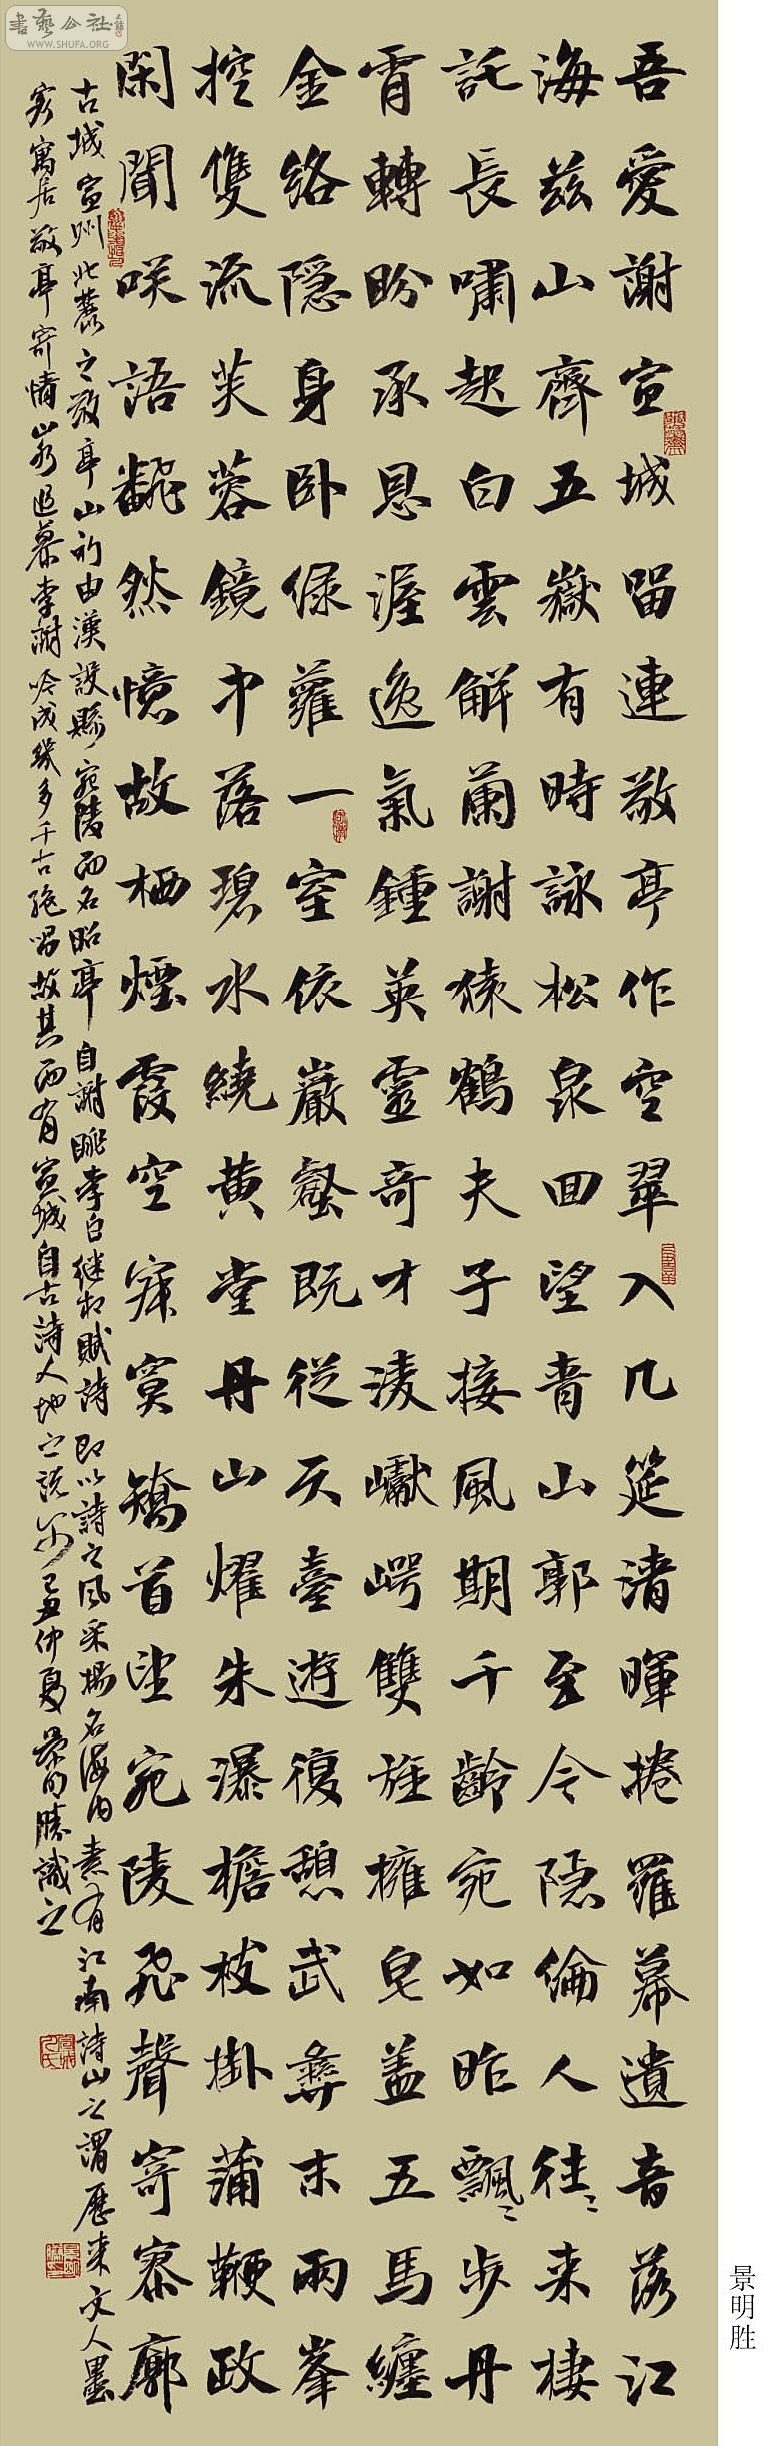 書藝公社
WWW.SHUFA.ORG
吾愛謝宣城留連敬亭作空翠入几筵清暉捲羅幕遺音落江
海茲山齊五嶽有時詠松泉回望青山郭至今隱倫人往〻來棲
託長嘯起白雲解蘭謝猿鶴夫子接風期千齡宛如昨飄〻步丹
霄轉盼承恩渥逸氣鍾英靈奇才淩巘崿雙旌擁皂盖五馬纏
金絡隱身卧綠蘿一室依巖壑既從天臺遊復憩武彝末兩峯
控雙流芙蓉鏡中落碧水繞黄堂丹山燿朱瀑檐枝掛蒲鞭政
閑聞咲語飜然憶故栖煙霞空寂寞矯首望宛陵飛聲寄寥廓
古城宣州北麓之敬亭山初由漢設縣宛陵而名昭亭自謝眺李白繼相賦詩即以詩之風采揚名海内素有江南詩山之謂歷来文人墨
客寓居敬亭寄情山水追慕李謝吟成幾多千古絶唱故其而有宣城自古詩人地之説尔己丑仲夏景明勝識之
景明胜